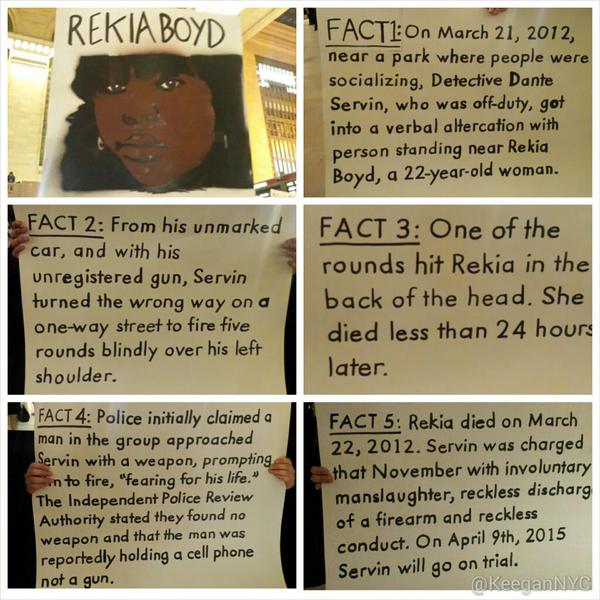 REKIA BOYD
FACT1: On March 21, 2012,
near a park where people were
socializing, Detective Dante
Servin, who was off-duty, got
into a verbal altercation with
person standing near Rekia
Boyd, a 22-year-old woman.
FACT 2: From his unmarked
car, and with his
unregistered gun, Servin
turned the wrong way on a
one-way street to fire five
rounds blindly over his left
shoulder.
FACT 3: One of the
rounds hit Rekia in the
back of the head. She
died less than 24 hours
later.
FACT 4: Police initially claimed a
man in the group approached
Servin with a weapon, prompting
to fire, "fearing for his life."
The Independent Police Review
Authority stated they found no
weapon and that the man was
reportedly holding a cell phone
not a gun.
FACT 5: Rekia died on March
22, 2012. Servin was charged
that November with involuntary
manslaughter, reckless discharg
of a firearm and reckless
conduct. On April 9th, 2015
Servin will go on trial.
@KeeganNYC